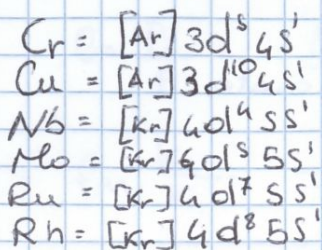 Cr = [Ar] 3d⁵ 4s¹
Cu = [Ar] 3d¹⁰ 4s¹
Nb = [Kr] 4d⁴ 5s¹
Mo = [Kr] 4d⁵ 5s¹
Ru = [Kr] 4d⁷ 5s¹
Rh = [Kr] 4d⁸ 5s¹